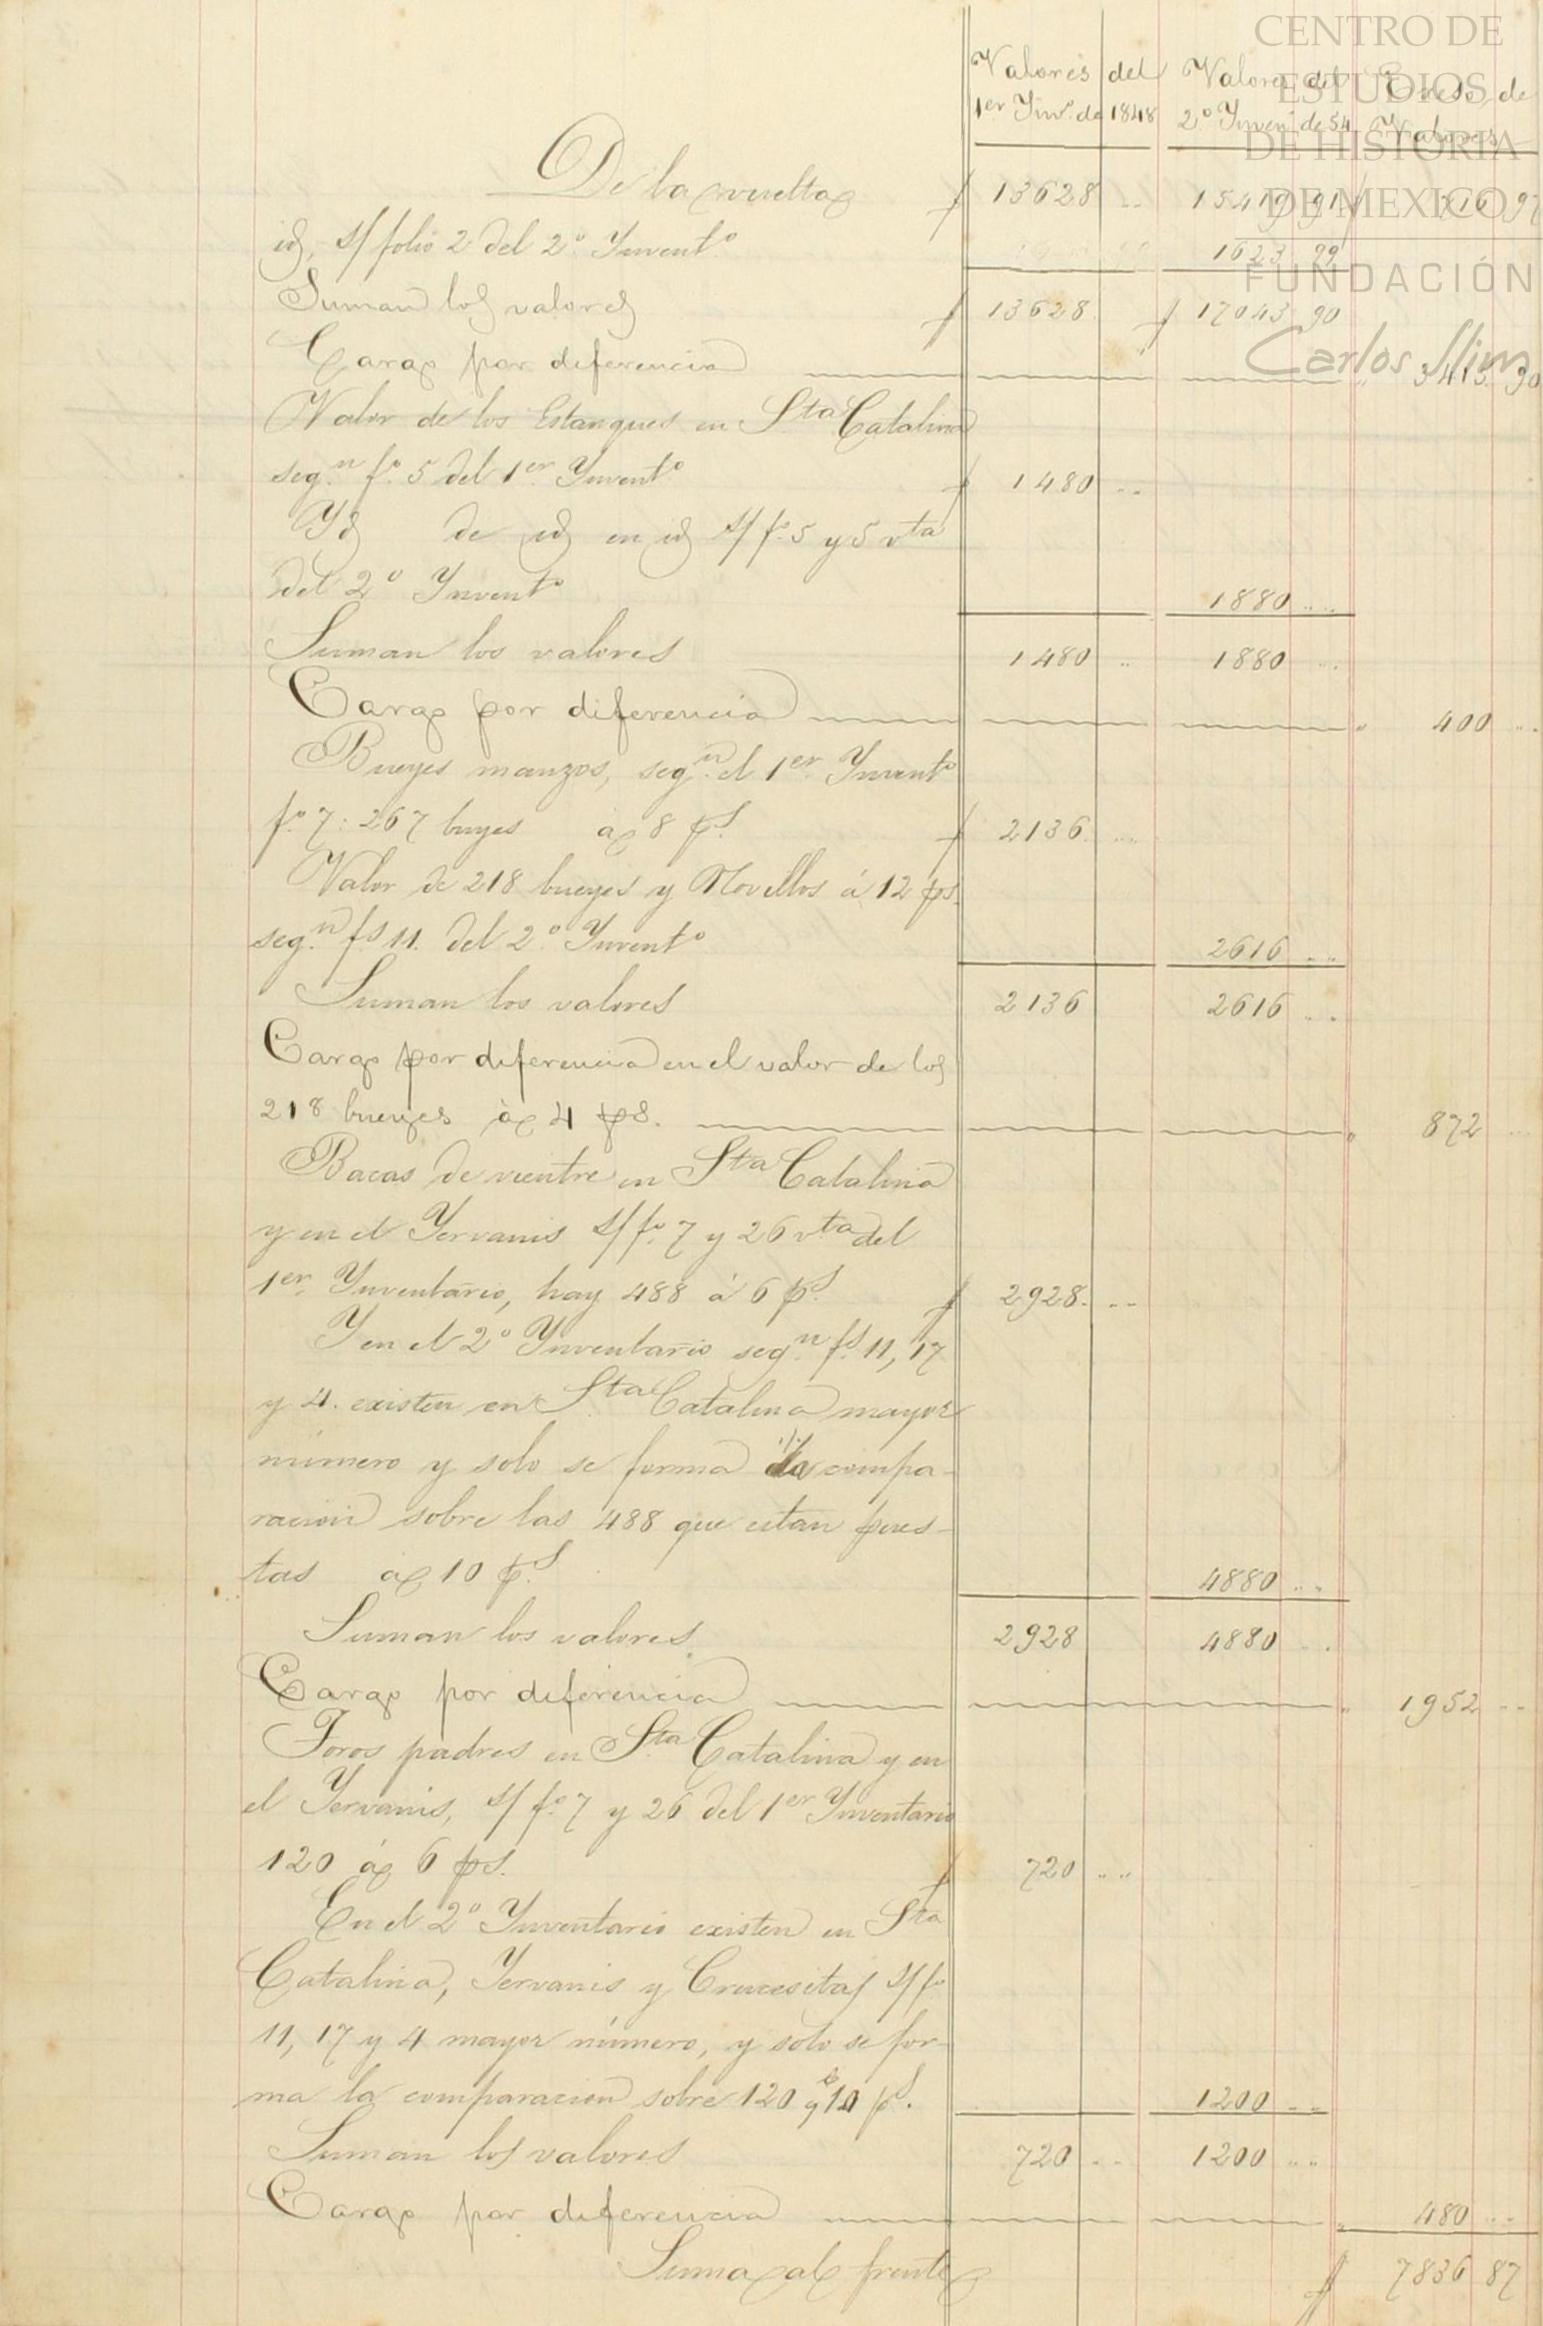 CENTRO DE
ESTUDIOS
DE HISTORIA
DE MEXICO
FUNDACIÓN
Carlos Slim
Valores del Valores del de
1er Ynvo. de 1848 2o Ynven de 54 Valores
De la vuelta 13628 .. 15419 91 716 97
id, s/ folio 2 del 2o. Ynvento. 1623 99
Suman los valores 13628 17043 90
Cargo por diferencia 3415 90
Valor de los Estanques en Sta Catalina
segn. fo. 5 del 1er Ynvento 1480 ..
Yd de id en id s/ fo. 5 y 5 vta
del 2o Ynvento 1880 ..
Suman los valores 1480 .. 1880 ..
Cargo por diferencia " 400 ..
Bueyes manzos, segn. el 1er Ynvento
fo. 7: 267 buyes á 8 ps. 2136 ..
Valor de 218 bueyes y Novillos á 12 ps.
segn. fs 11. del 2o. Ynvento 2616 ..
Suman los valores 2136 2616 ..
Cargo por diferencia en el valor de los
218 bueyes á 4 ps. " 872 ..
Bacas de vientre en Sta Catalina
y en el Yervanis s/ fo. 7 y 26 vta del
1er. Ynventario, hay 488 á 6 ps. 2928. ..
Y en el 2o Ynventario segn. fs. 11, 17
y 4. existen en Sta. Catalina mayor
número y solo se forma la compa-
racion sobre las 488 que estan pues-
tas á 10 ps. 4880 ..
Suman los valores 2928 4880 ..
Cargo por diferencia " 1952 ..
Toros padres en Sta. Catalina y en
el Yervanis, s/ fo. 7 y 26 del 1er Ynventario
120 á 6 ps. 720 ..
En el 2o Ynventario existen en Sta
Catalina, Yervanis y Crucesitas s/ fo
11, 17 y 4 mayor número, y solo se for-
ma la comparacion sobre 120 á 10 ps. 1200 ..
Suman los valores 720 .. 1200 ..
Cargo por diferencia " 480 ..
Suma al frente 7836 87